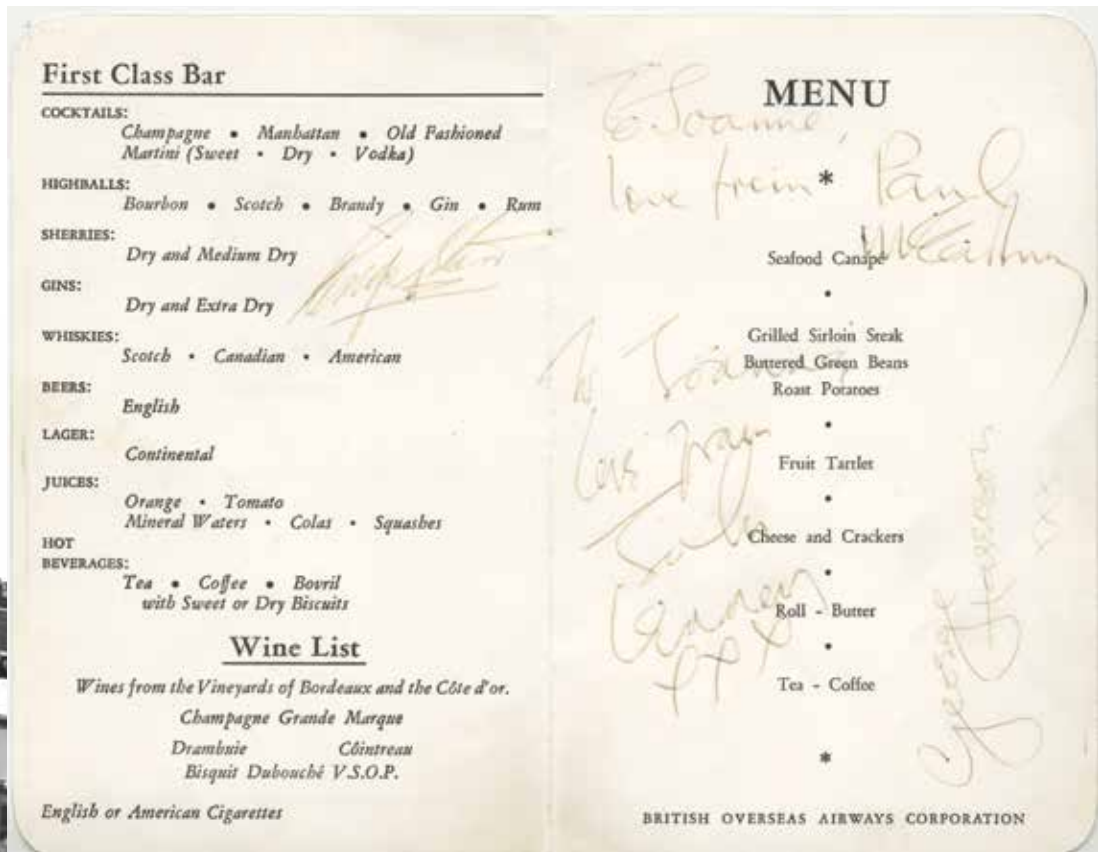 First Class Bar
COCKTAILS:
Champagne • Manhattan • Old Fashioned
Martini (Sweet • Dry • Vodka)
HIGHBALLS:
Bourbon • Scotch • Brandy • Gin • Rum
SHERRIES:
Dry and Medium Dry
GINS:
Dry and Extra Dry
WHISKIES:
Scotch • Canadian • American
BEERS:
English
LAGER:
Continental
JUICES:
Orange • Tomato
Mineral Waters • Colas • Squashes
HOT
BEVERAGES:
Tea • Coffee • Bovril
with Sweet or Dry Biscuits
Wine List
Wines from the Vineyards of Bordeaux and the Côte d'or.
Champagne Grande Marque
Drambuie Côintreau
Bisquit Dubouché V.S.O.P.
English or American Cigarettes
MENU
*
Seafood Canapé
•
Grilled Sirloin Steak
Buttered Green Beans
Roast Potatoes
•
Fruit Tartlet
•
Cheese and Crackers
•
Roll - Butter
•
Tea - Coffee
*
BRITISH OVERSEAS AIRWAYS CORPORATION
To Joanne,
love from Paul
McCartney
To Joanne
love from
John
Lennon
xxx
George
Harrison
xxx